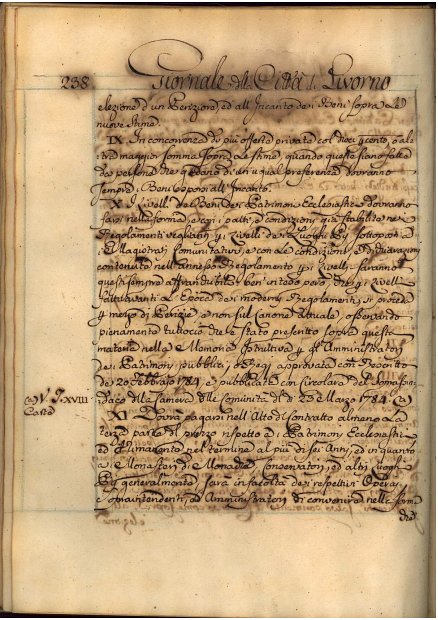 238. Giornale della Città di Livorno
elezione d'un Perizore, ed all'Incanto dei Beni sopra le
nuove Stime.
IX. In concorrenza di più offerte private col dieci per cento, o al
tra maggior somma sopra le stime, quando queste siano fatte
da persone che godano di un ugual preferenza dovranno
sempre i Beni esporsi all'Incanto.
X. I Livelli dei Beni dei Patrimoni Ecclesiastici dovranno
farsi nella forma, e con i patti, e condizioni già stabilite nei
Regolamenti veglianti per i Livelli dei Luoghi Pii sottoposti a
i Magistrati Comunitativi, e con le condizioni, e dichiarazioni
contenute nell'annesso Regolamento per i Livelli, saranno
questi sempre affrancabili, ben inteso però che per i Livelli
fatti avanti l'Epoca dei moderni Regolamenti, si proceda
per mezzo di Perizie, e non sul Canone attuale, osservando
pienamente tuttociò che è stato prescritto sopra questa
materia nella Memoria Istruttiva per gli Amministratori
dei Patrimoni pubblici, e Regj approvata con Rescritto
de' 20 Febbraio 1784, e pubblicata con Circolare del Soprassin
daco della Camera delle Comunità di 23 Marzo 1784. (a)
(a) V. F. XXVIII
Carte
XI. Dovrà pagarsi nell'Atto di Contratto almeno la
terza parte del prezzo rispetto a i Patrimoni Ecclesiastici
ed il rimanente nel termine al più di sei Anni, ed in quanto
a i Monasteri di Monache Conservatori, ed altri Luoghi
Pii generalmente sarà in facoltà dei respettivi Operai,
e Soprintendenti, ed Amministratori di convenire nella forma
che